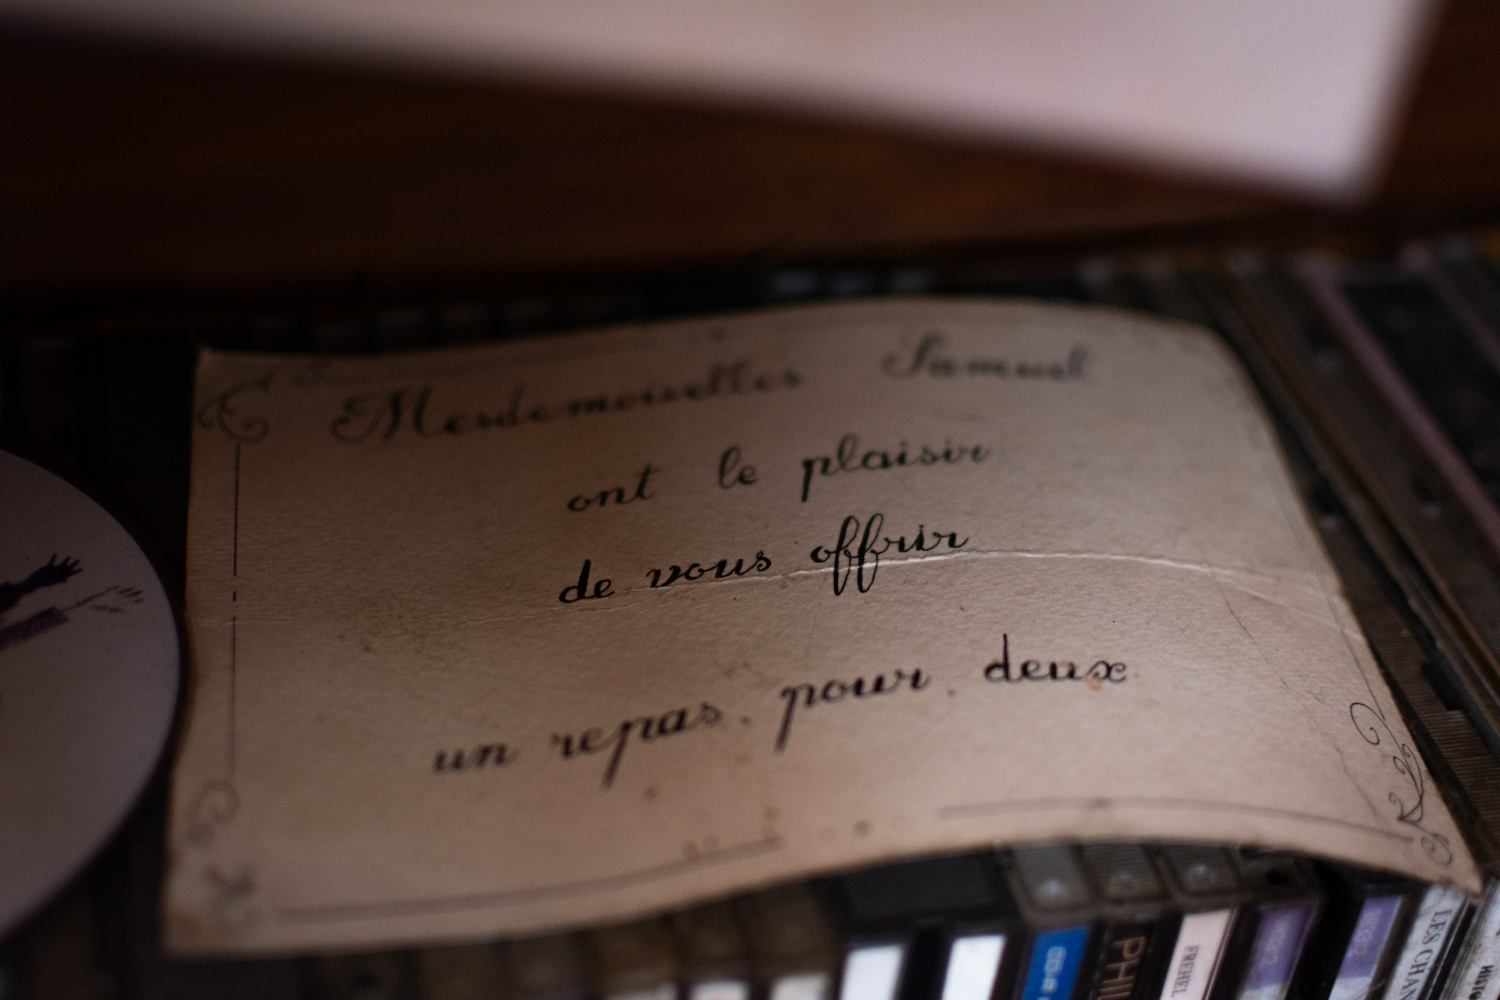 Mesdemoiselles Samuel
ont le plaisir
de vous offrir
un repas pour deux
CD-R
PHIL
FREHEL
LES CHAN
HISTO